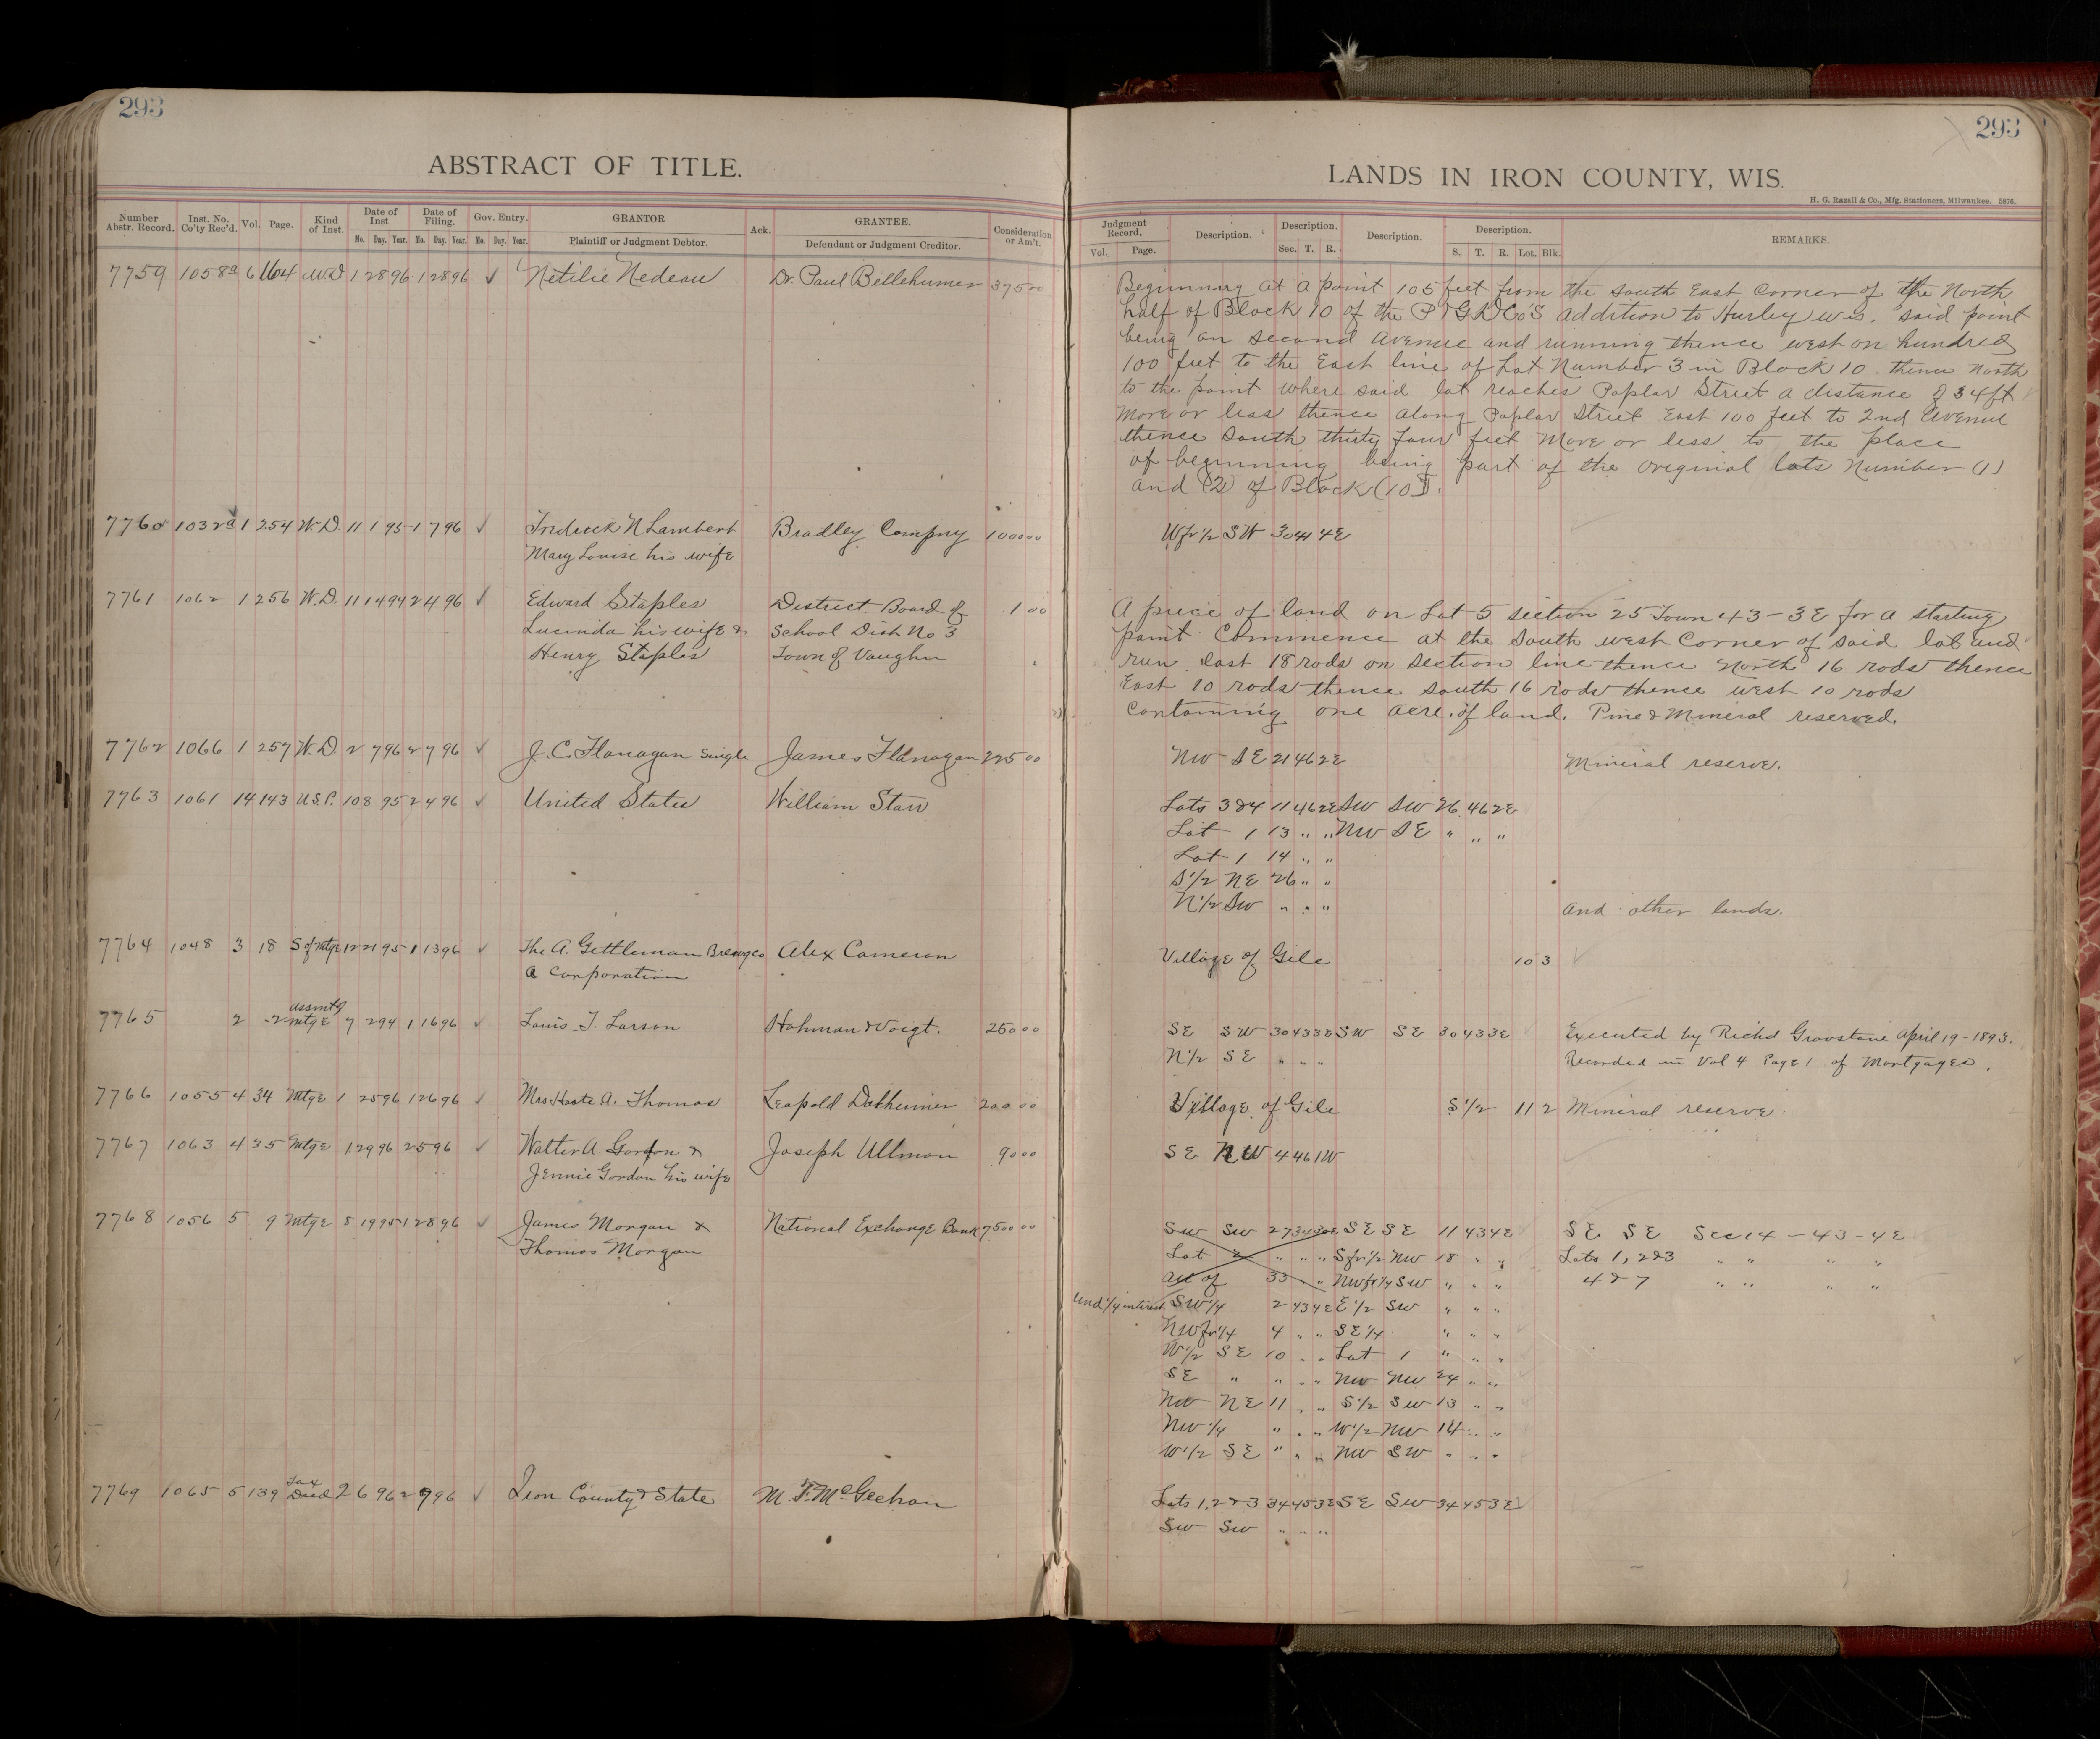 293
ABSTRACT OF TITLE.
Number Abstr. Record. Inst. No. Co'ty Rec'd. Vol. Page. Kind of Inst. Date of Inst Date of Filing. Gov. Entry. GRANTOR Ack. GRANTEE. Consideration or Am't.
Mo. Day. Year. Mo. Day. Year. Mo. Day. Year. Plaintiff or Judgment Debtor. Defendant or Judgment Creditor.
7759 1058a 6 164 W.D 1 28 96 1 28 96 ✓ Netilie Nedeau Dr. Paul Bellehumer 375 00
7760 1032a 1 254 W.D. 11 1 95 1 7 96 ✓ Fredrick N Lambert Bradley Company 100 00
Mary Louise his wife
7761 1062 1 256 W.D. 11 14 94 2 4 96 ✓ Edward Staples District Board of 1 00
Lucinda his wife & School Dist No 3
Henry Staples Town of Vaughn
7762 1066 1 257 W.D 2 7 96 2 7 96 ✓ J.C. Flanagan Single James Flanagan 225 00
7763 1061 14 143 U.S.P. 10 8 95 2 4 96 ✓ United States William Starr
7764 1048 3 18 S of Mtge 12 21 95 1 13 96 ✓ The A. Gettleman Brewg Co Alex Cameron
a Corporation
7765 2 2 assmt of Mtge 7 2 94 1 16 96 ✓ Louis T. Larson Hohman & Voigt. 250 00
7766 1055 4 34 Mtge 1 25 96 1 26 96 ✓ Mrs A. Thomas Leopold Dalheimer 200 00
7767 1063 4 35 Mtge 1 29 96 2 5 96 ✓ Walter A Gordon & Joseph Ullman 90 00
Jennie Gordon his wife
7768 1056 5 9 Mtge 8 19 95 1 28 96 ✓ James Morgan & National Exchange Bank 7500 00
Thomas Morgan
7769 1065 5 139 Tax Deed 2 6 96 2 7 96 ✓ Iron County & State M. F. McGeehan
293
LANDS IN IRON COUNTY, WIS.
H. G. Razall & Co., Mfg. Stationers, Milwaukee. 5876.
Judgment Record, Description. Description. Description. Description. REMARKS.
Vol. Page. Sec. T. R. S. T. R. Lot. Blk.
Beginning at a point 105 feet from the South East Corner of the North
half of Block 10 of the Co's addition to Hurley Wis. said point
being on Second Avenue and running thence west on hundred
100 feet to the East line of Lot Number 3 in Block 10 thence North
to the point where said lot reaches Poplar Street a distance of 34 ft
More or less thence along Poplar Street East 100 feet to 2nd Avenue
thence South thirty four feet More or less to the place
of beginning being part of the original lots Number (1)
and (2) of Block (10).
W fr 1/2 SW 30 44 4E
A piece of land on Lot 5 section 25 Town 43-3E for a starting
point Commence at the South west Corner of said lot and
run East 18 rods on section line thence North 16 rods thence
East 10 rods thence South 16 rods thence west 10 rods
Containing one acre of land. Pine & Mineral reserved.
NW SE 21 46 2E Mineral reserve.
Lots 3 & 4 11 46 2E SW SW 26 46 2E
Lot 1 13 " " NW SE " " "
Lot 1 14 " "
S 1/2 NE 26 " "
N 1/2 SW " " " And other lands.
Village of Gile 10 3
SE SW 30 43 3E SW SE 30 43 3E Executed by Richd April 19-1893.
N 1/2 SE " " " Recorded in Vol 4 Page 1 of Mortgages.
Village of Gile S 1/2 11 2 Mineral reserve.
SE NW 4 46 1W
SW SW 27 SE SE 11 43 4E SE SE Sec 14-43-4E
Lot 2 " " " S fr 1/2 NW 18 " " Lots 1, 2 & 3 " " " "
All of 33 " " NW fr 1/4 SW " " " 4 & 7 " " " "
Und 1/4 interest SW 1/4 2 43 4E E 1/2 SW " " "
NW fr 1/4 4 " " SE 1/4 " " "
W 1/2 SE 10 " " Lot 1 " " "
SE " " " " NW NW 24 " "
NW NE 11 " " S 1/2 SW 13 " "
NW 1/4 " " " W 1/2 NW 14 " "
W 1/2 SE " " " NW SW " " "
Lots 1, 2 & 3 34 45 3E SE SW 34 45 3E
SW SW " " "